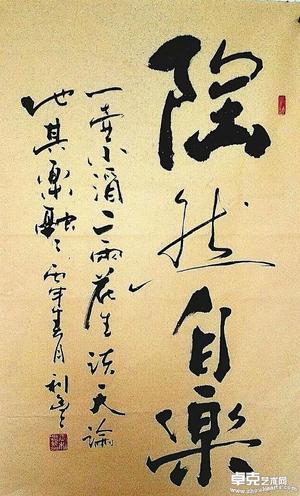 陶然自樂
一壺小酒二兩花生談天論
地其樂融々 春月
卓克艺术网
www.zhuokearts.com